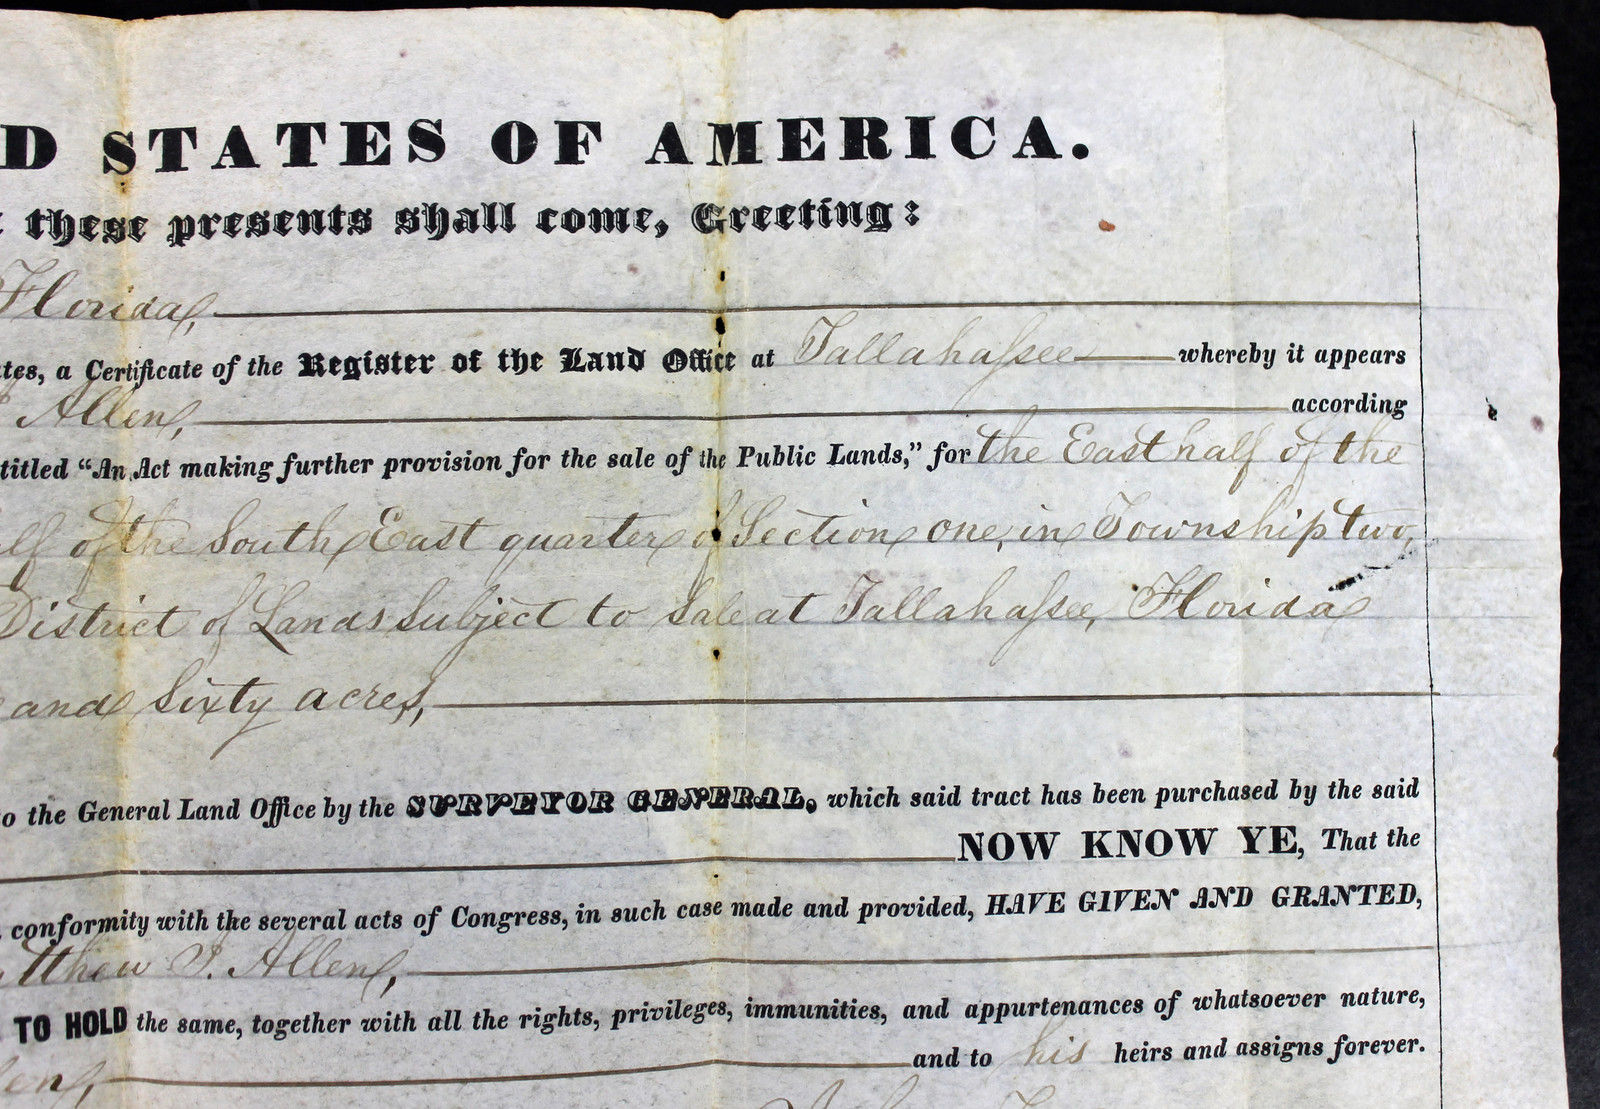 D STATES OF AMERICA.
these presents shall come, Greeting:
Florida,
tes, a Certificate of the Register of the Land Office at Tallahassee whereby it appears
Allen, according
titled “An Act making further provision for the sale of the Public Lands,” for the East half of the
lf of the South East quarter of Section one, in Township two,
District of Lands Subject to Sale at Tallahassee, Florida
and Sixty acres,
o the General Land Office by the SURVEYOR GENERAL, which said tract has been purchased by the said
NOW KNOW YE, That the
conformity with the several acts of Congress, in such case made and provided, HAVE GIVEN AND GRANTED,
tthew J. Allen,
TO HOLD the same, together with all the rights, privileges, immunities, and appurtenances of whatsoever nature,
len, and to his heirs and assigns forever.